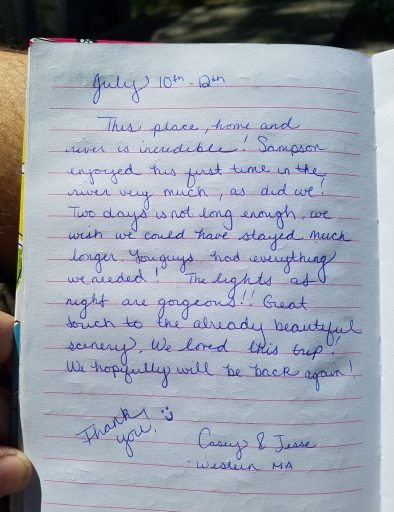 July 10th - 12th
This place, home and
river is incredible! Sampson
enjoyed his first time in the
river very much, as did we!
Two days is not long enough, we
wish we could have stayed much
longer. You guys had everything
we needed! The lights at
night are gorgeous!! Great
touch to the already beautiful
scenery. We loved this trip!
We hopefully will be back again!
Thank
you! :)
Casey & Jesse
Western MA